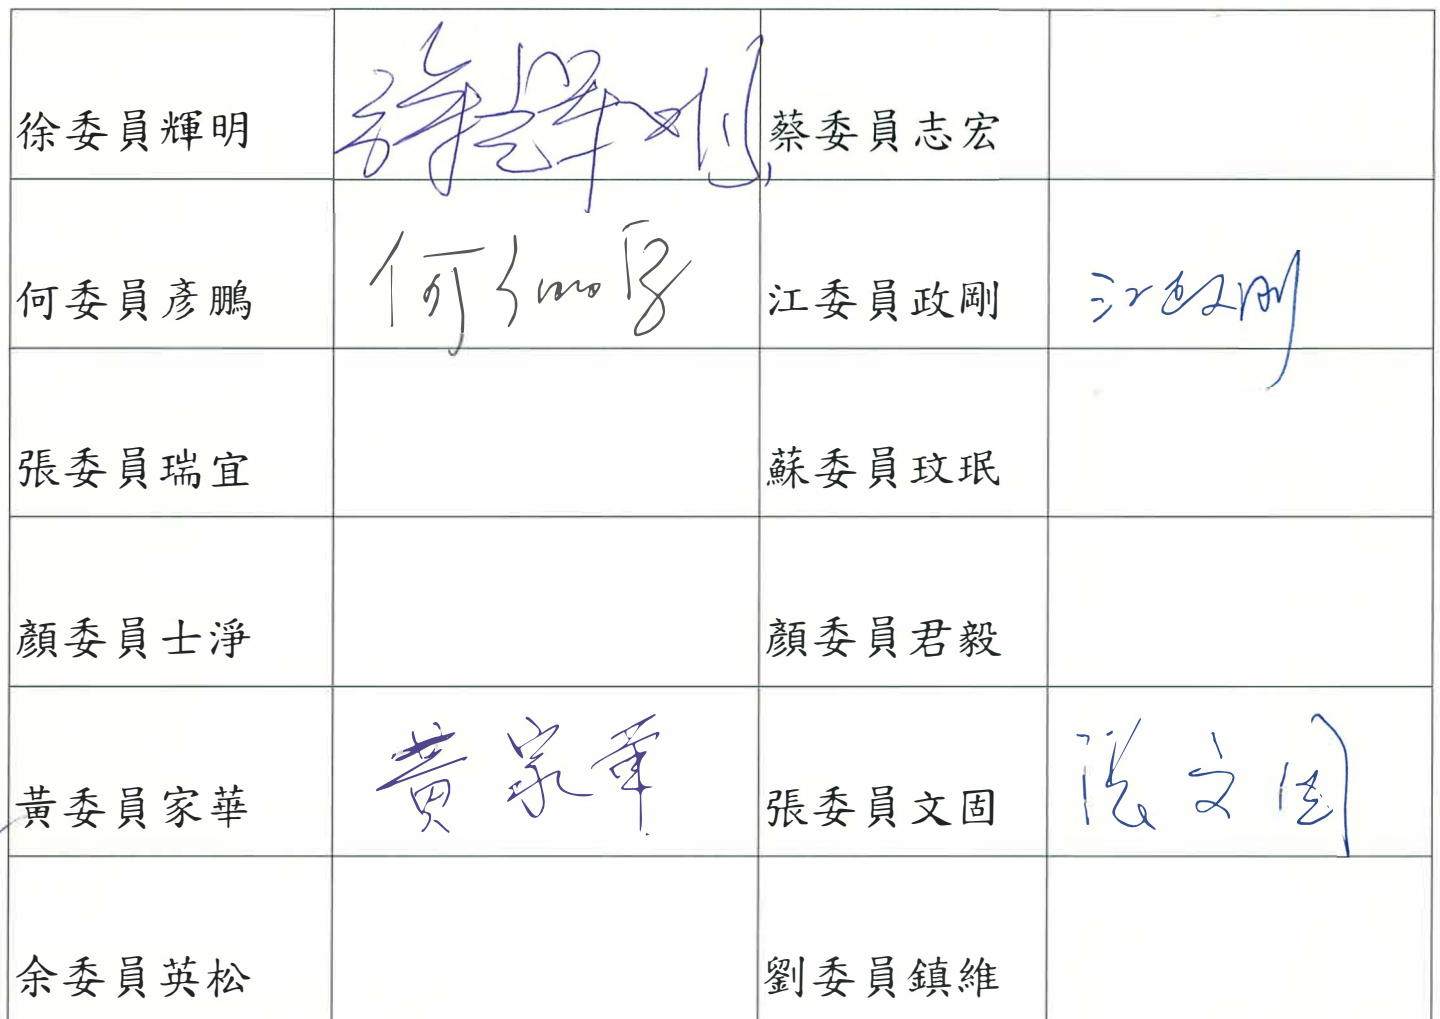 徐委員輝明 徐輝明 蔡委員志宏
何委員彥鵬 江委員政剛 江政剛
張委員瑞宜 蘇委員玟珉
顏委員士淨 顏委員君毅
黃委員家華 黃家華 張委員文固 張文固
余委員英松 劉委員鎮維